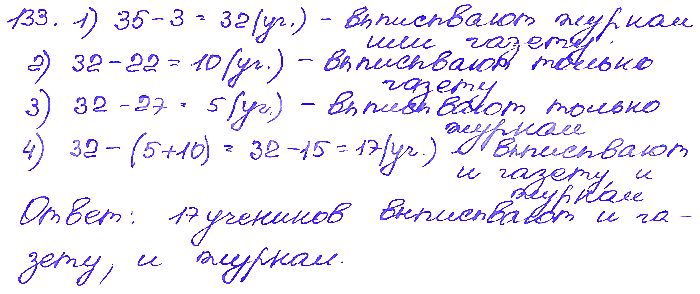 133. 1) 35-3=32(уч.) - выписывают журнал
или газету.
2) 32-22=10(уч.) - выписывают только
газету
3) 32-27=5(уч.) - выписывают только
журнал
4) 32-(5+10)=32-15=17(уч.) - выписывают
и газету, и
журнал
Ответ: 17 учеников выписывают и га-
зету, и журнал.